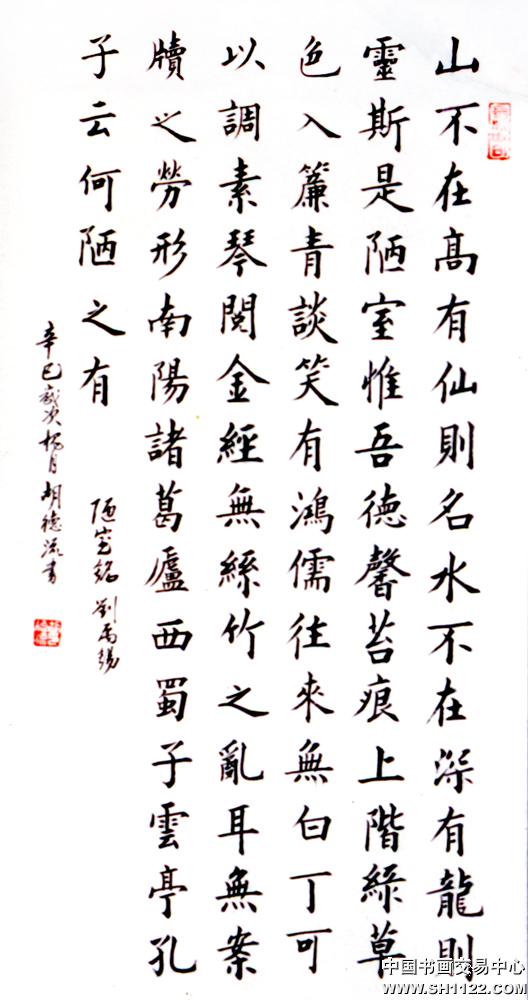 山不在髙有仙則名水不在深有龍則
靈斯是陋室惟吾德馨苔痕上階綠草
色入簾青談笑有鴻儒往來無白丁可
以調素琴閱金經無絲竹之亂耳無案
牘之勞形南陽諸葛廬西蜀子雲亭孔
子云何陋之有
陋室銘 劉禹錫
辛巳歲次月胡德流書
中国书画交易中心
WWW.SH1122.COM